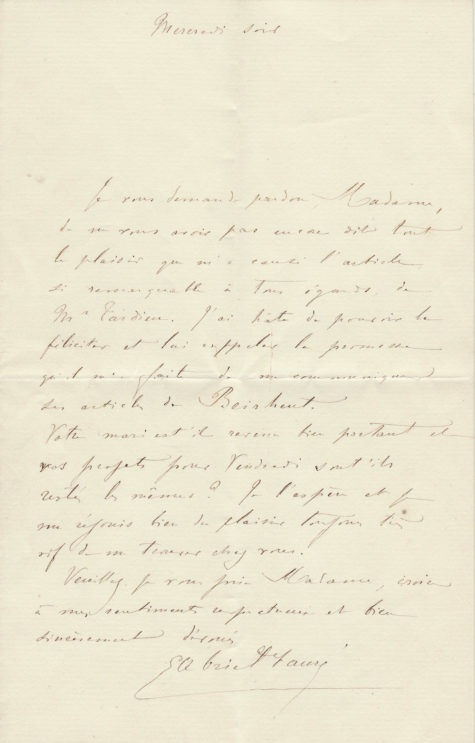 Mercredi soir
Je vous demande pardon, Madame,
de ne vous avoir pas encore dit tout
le plaisir que m'a causé l'article
si remarquable à tous égards, de
Mr Tardieu. J'ai hâte de pouvoir le
féliciter et lui rappeler la promesse
qu'il m'a faite de me communiquer
ses articles de Beireuth.
Votre mari est-il revenu bien portant et
vos projets pour Vendredi sont-ils
restés les mêmes? Je l'espère et je
me réjouis bien du plaisir toujours très
vif de me trouver chez vous.
Veuillez je vous prie Madame, croire
à mes sentiments respectueux et bien
sincèrement dévoués
Gabriel Fauré